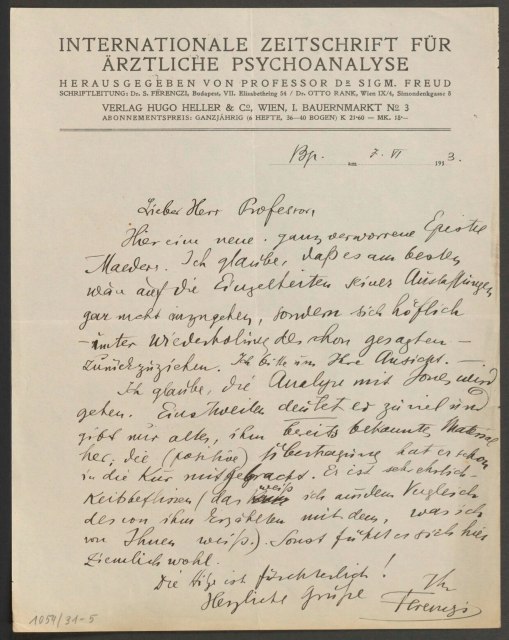 INTERNATIONALE ZEITSCHRIFT FÜR
ÄRZTLICHE PSYCHOANALYSE
HERAUSGEGEBEN VON PROFESSOR DR SIGM. FREUD
SCHRIFTLEITUNG: Dr. S. FERENCZI, Budapest, VII. Elisabethring 54 / Dr. OTTO RANK, Wien IX/4, Simondenkgasse 8
VERLAG HUGO HELLER & Co, WIEN, I. BAUERNMARKT No 3
ABONNEMENTSPREIS: GANZJÄHRIG (6 HEFTE, 36—40 BOGEN) K 21·60 — MK. 18·—
Bp. am 7. VI 1913.
Lieber Herr Professor,
Hier eine neue, ganz verworrene Epistel
Maeders. Ich glaube, daß es am besten
wär auf die Einzelheiten seiner Auslassungen
gar nicht einzugehen, sondern sich höflich
– unter Wiederholung des schon gesagten –
zurückzuziehen. Ich bitte um Ihre Ansicht. –
Ich glaube, die Analyse mit Jones wird
gehen. Einstweilen deutet er zu viel und
gibt nur altes, ihm bereits bekanntes Material
her, die (positive) Übertragung hat er schon
in die Kur mitgebracht. Er ist sehr ehrlich.
(das weiß ich aus dem Vergleich
des von ihm Erzählten mit dem, was ich
von Ihnen weiß). Sonst fühlt er sich hier
ziemlich wohl.
Die Hitze ist fürchterlich!
Herzliche Grüße Ihr
Ferenczi
1054/31-5